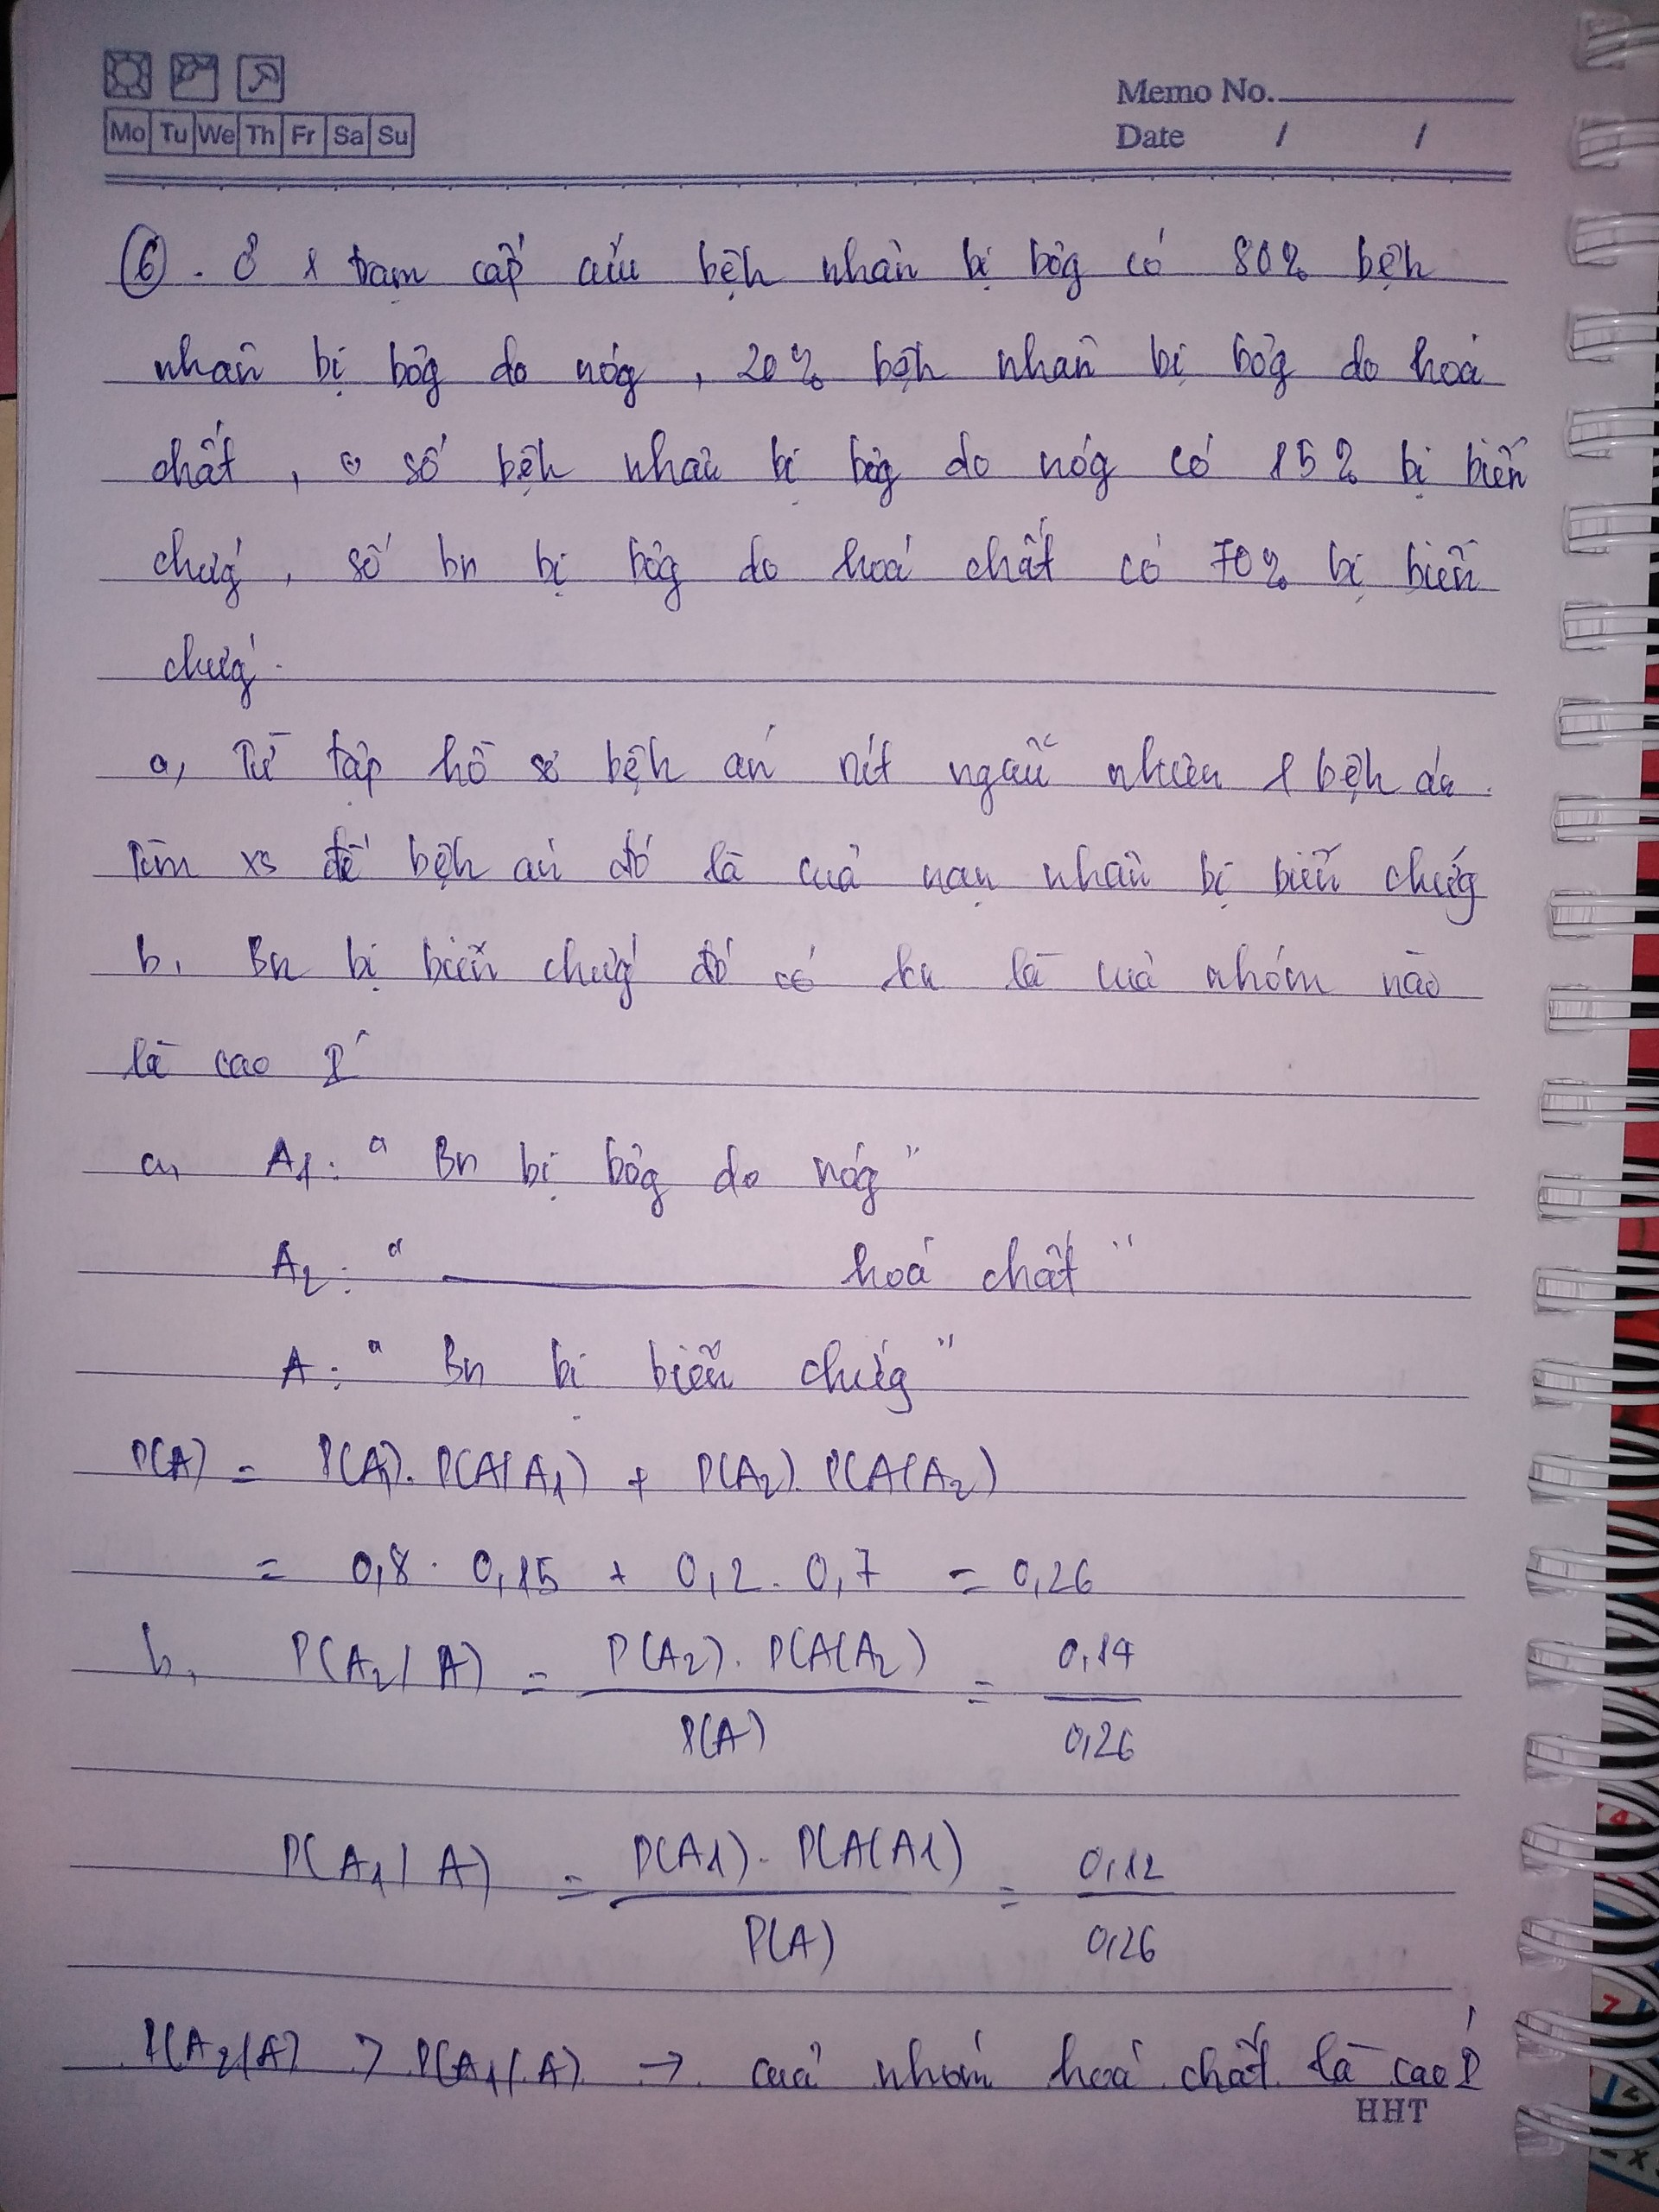 Mo Tu We Th Fr Sa Su
Memo No.
Date / /
⑥. Ở 1 trạm cấp cứu bệh nhân bị bỏg có 80% bệh
nhân bị bỏg do nóg, 20% bệh nhân bị bỏg do hoá
chất, số bệh nhân bị bỏg do nóg có 15% bị biến
chứg, số bn bị bỏg do hoá chất có 70% bị biến
chứg.
a, Từ tập hồ sơ bệh án rút ngẫu nhiên 1 bệh án.
Tìm xs để bệh án đó là của nạn nhân bị biến chứg
b, Bn bị biến chứg đó có kn là của nhóm nào
là cao 1́
a, A1: " Bn bị bỏg do nóg "
A2: " hoá chất "
A: " Bn bị biến chứg "
P(A) = P(A1). P(A/A1) + P(A2). P(A/A2)
= 0,8 . 0,15 + 0,2 . 0,7 = 0,26
b, P(A2/A) = P(A2). P(A/A2) / P(A) = 0,14 / 0,26
P(A1/A) = P(A1). P(A/A1) / P(A) = 0,12 / 0,26
P(A2/A) > P(A1/A) → của nhóm hoá chất là cao 1́
HHT